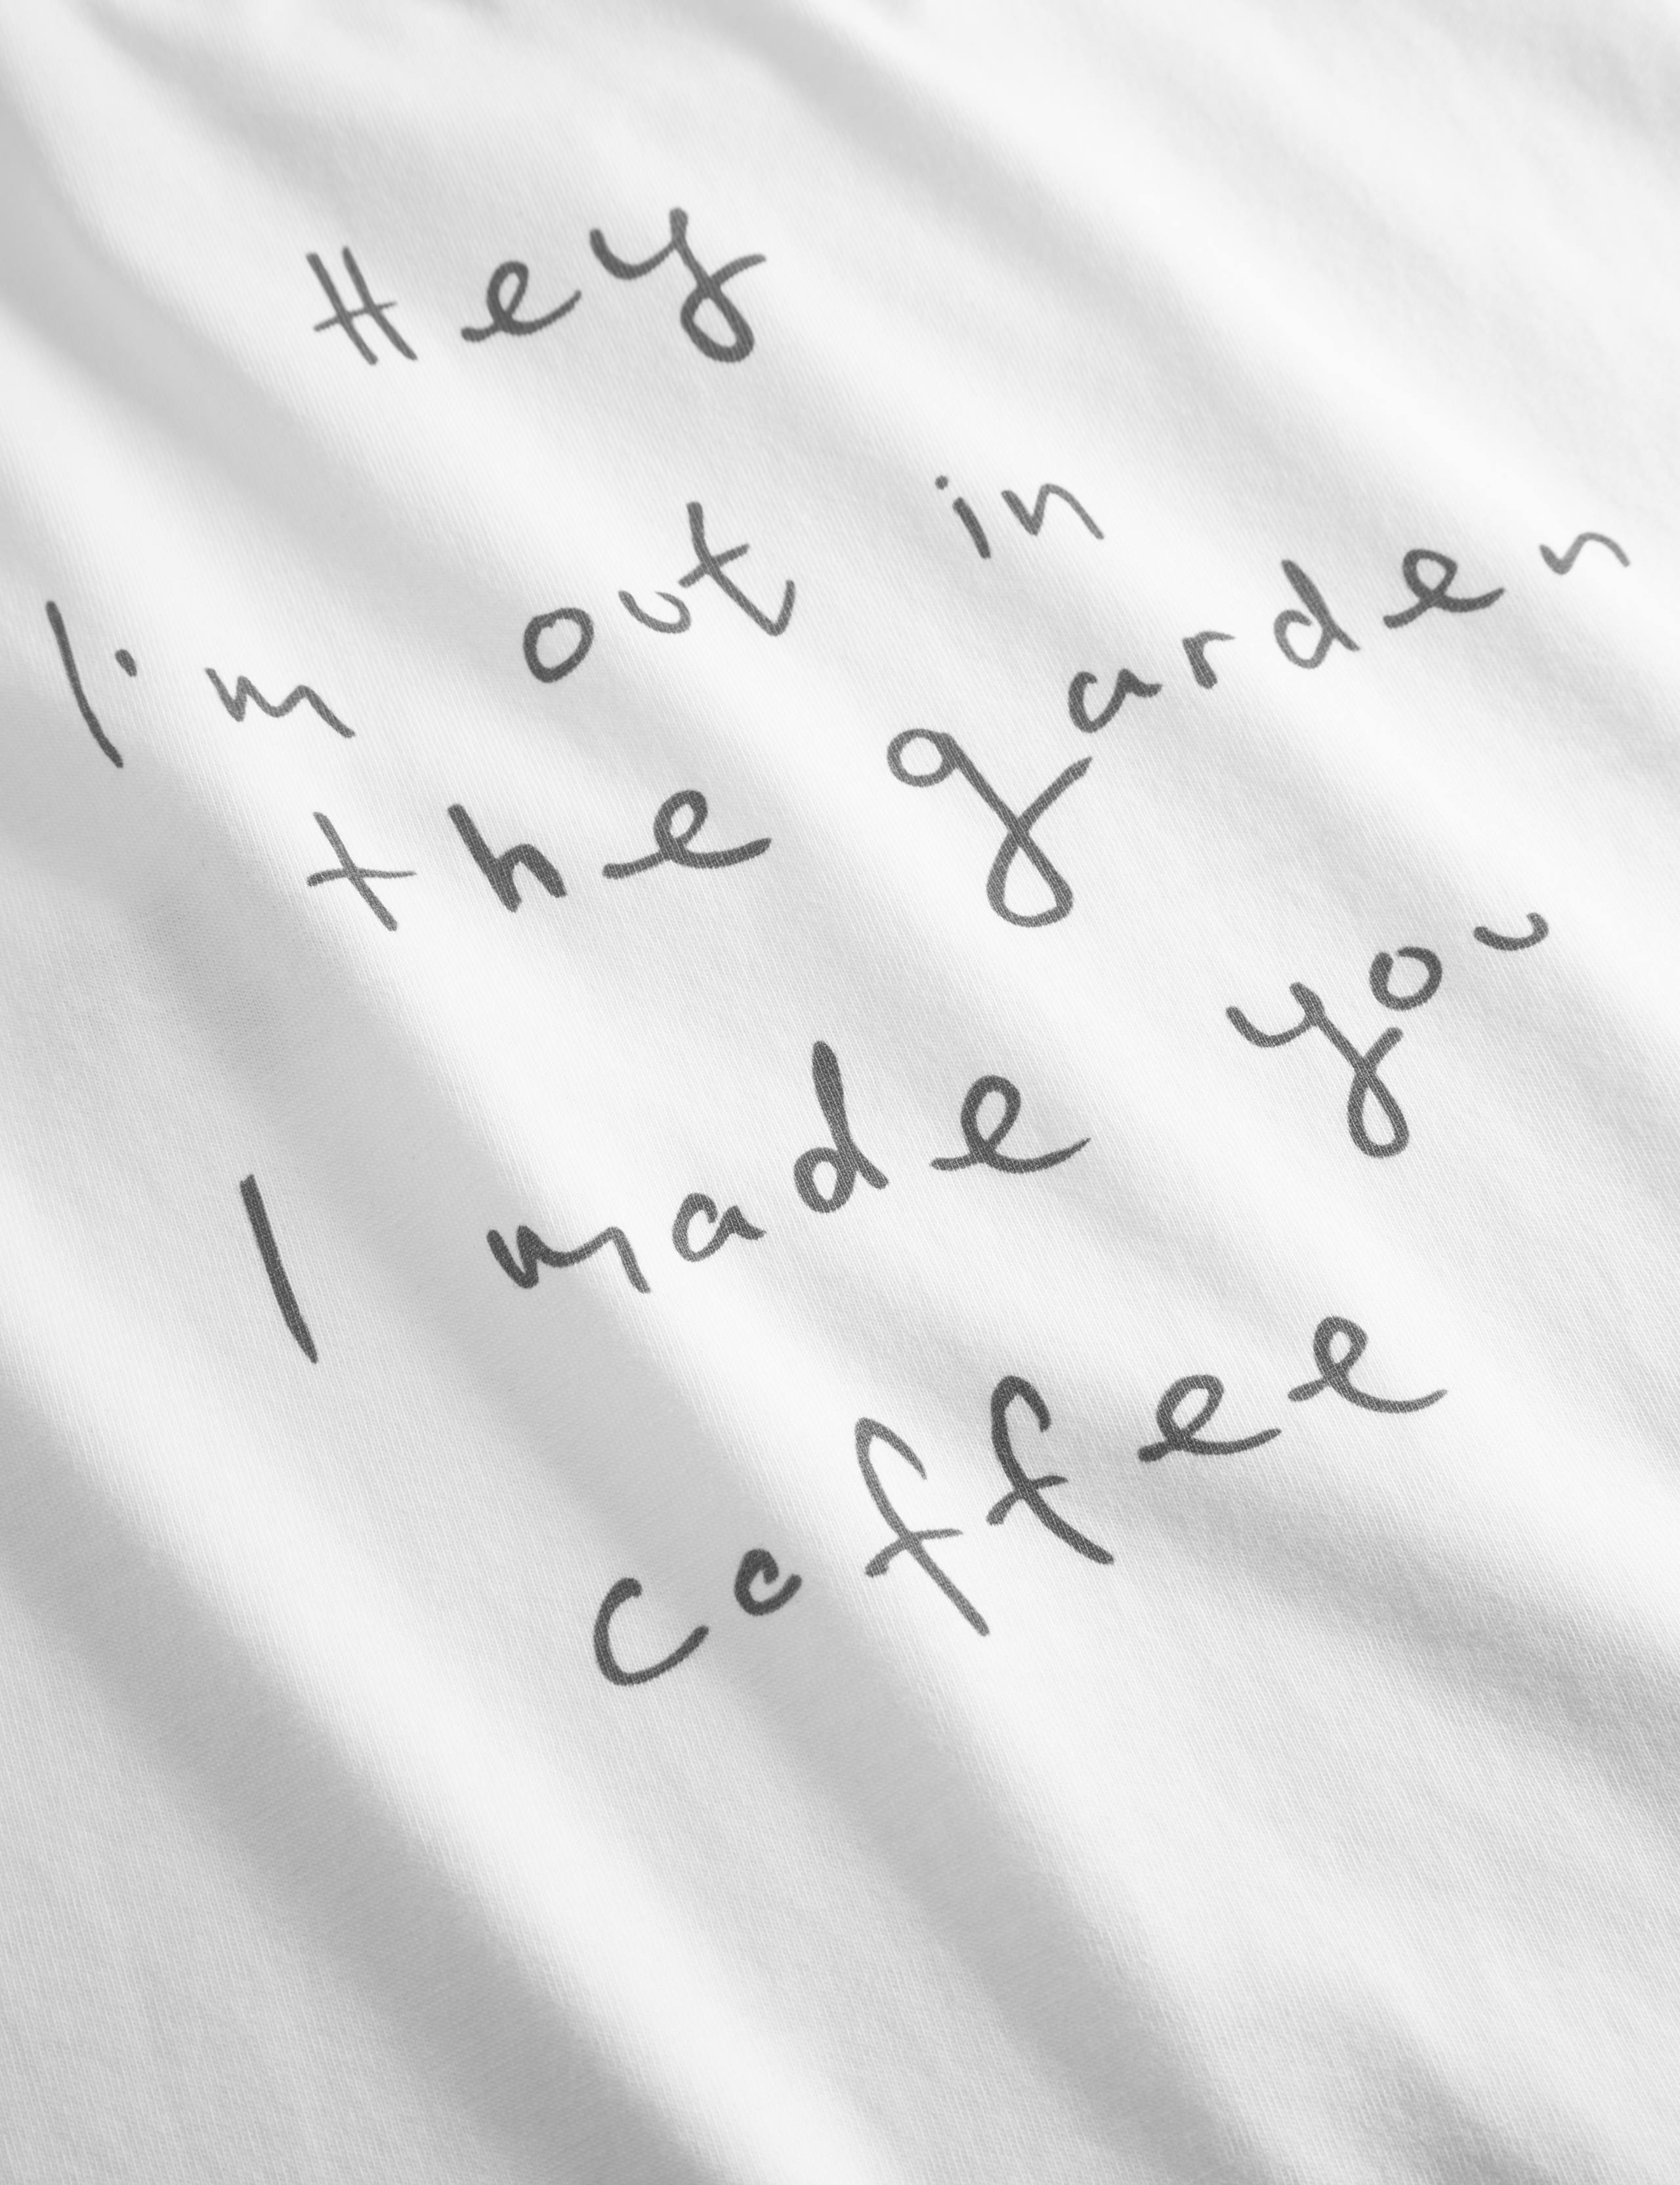 Hey
I'm out in
the garden
I made you
coffee